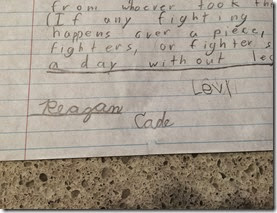 from whoever took th
(If any fighting
happens over a piece,
fighters, or fighter s
a day without le
Levi
Reagan
Cade